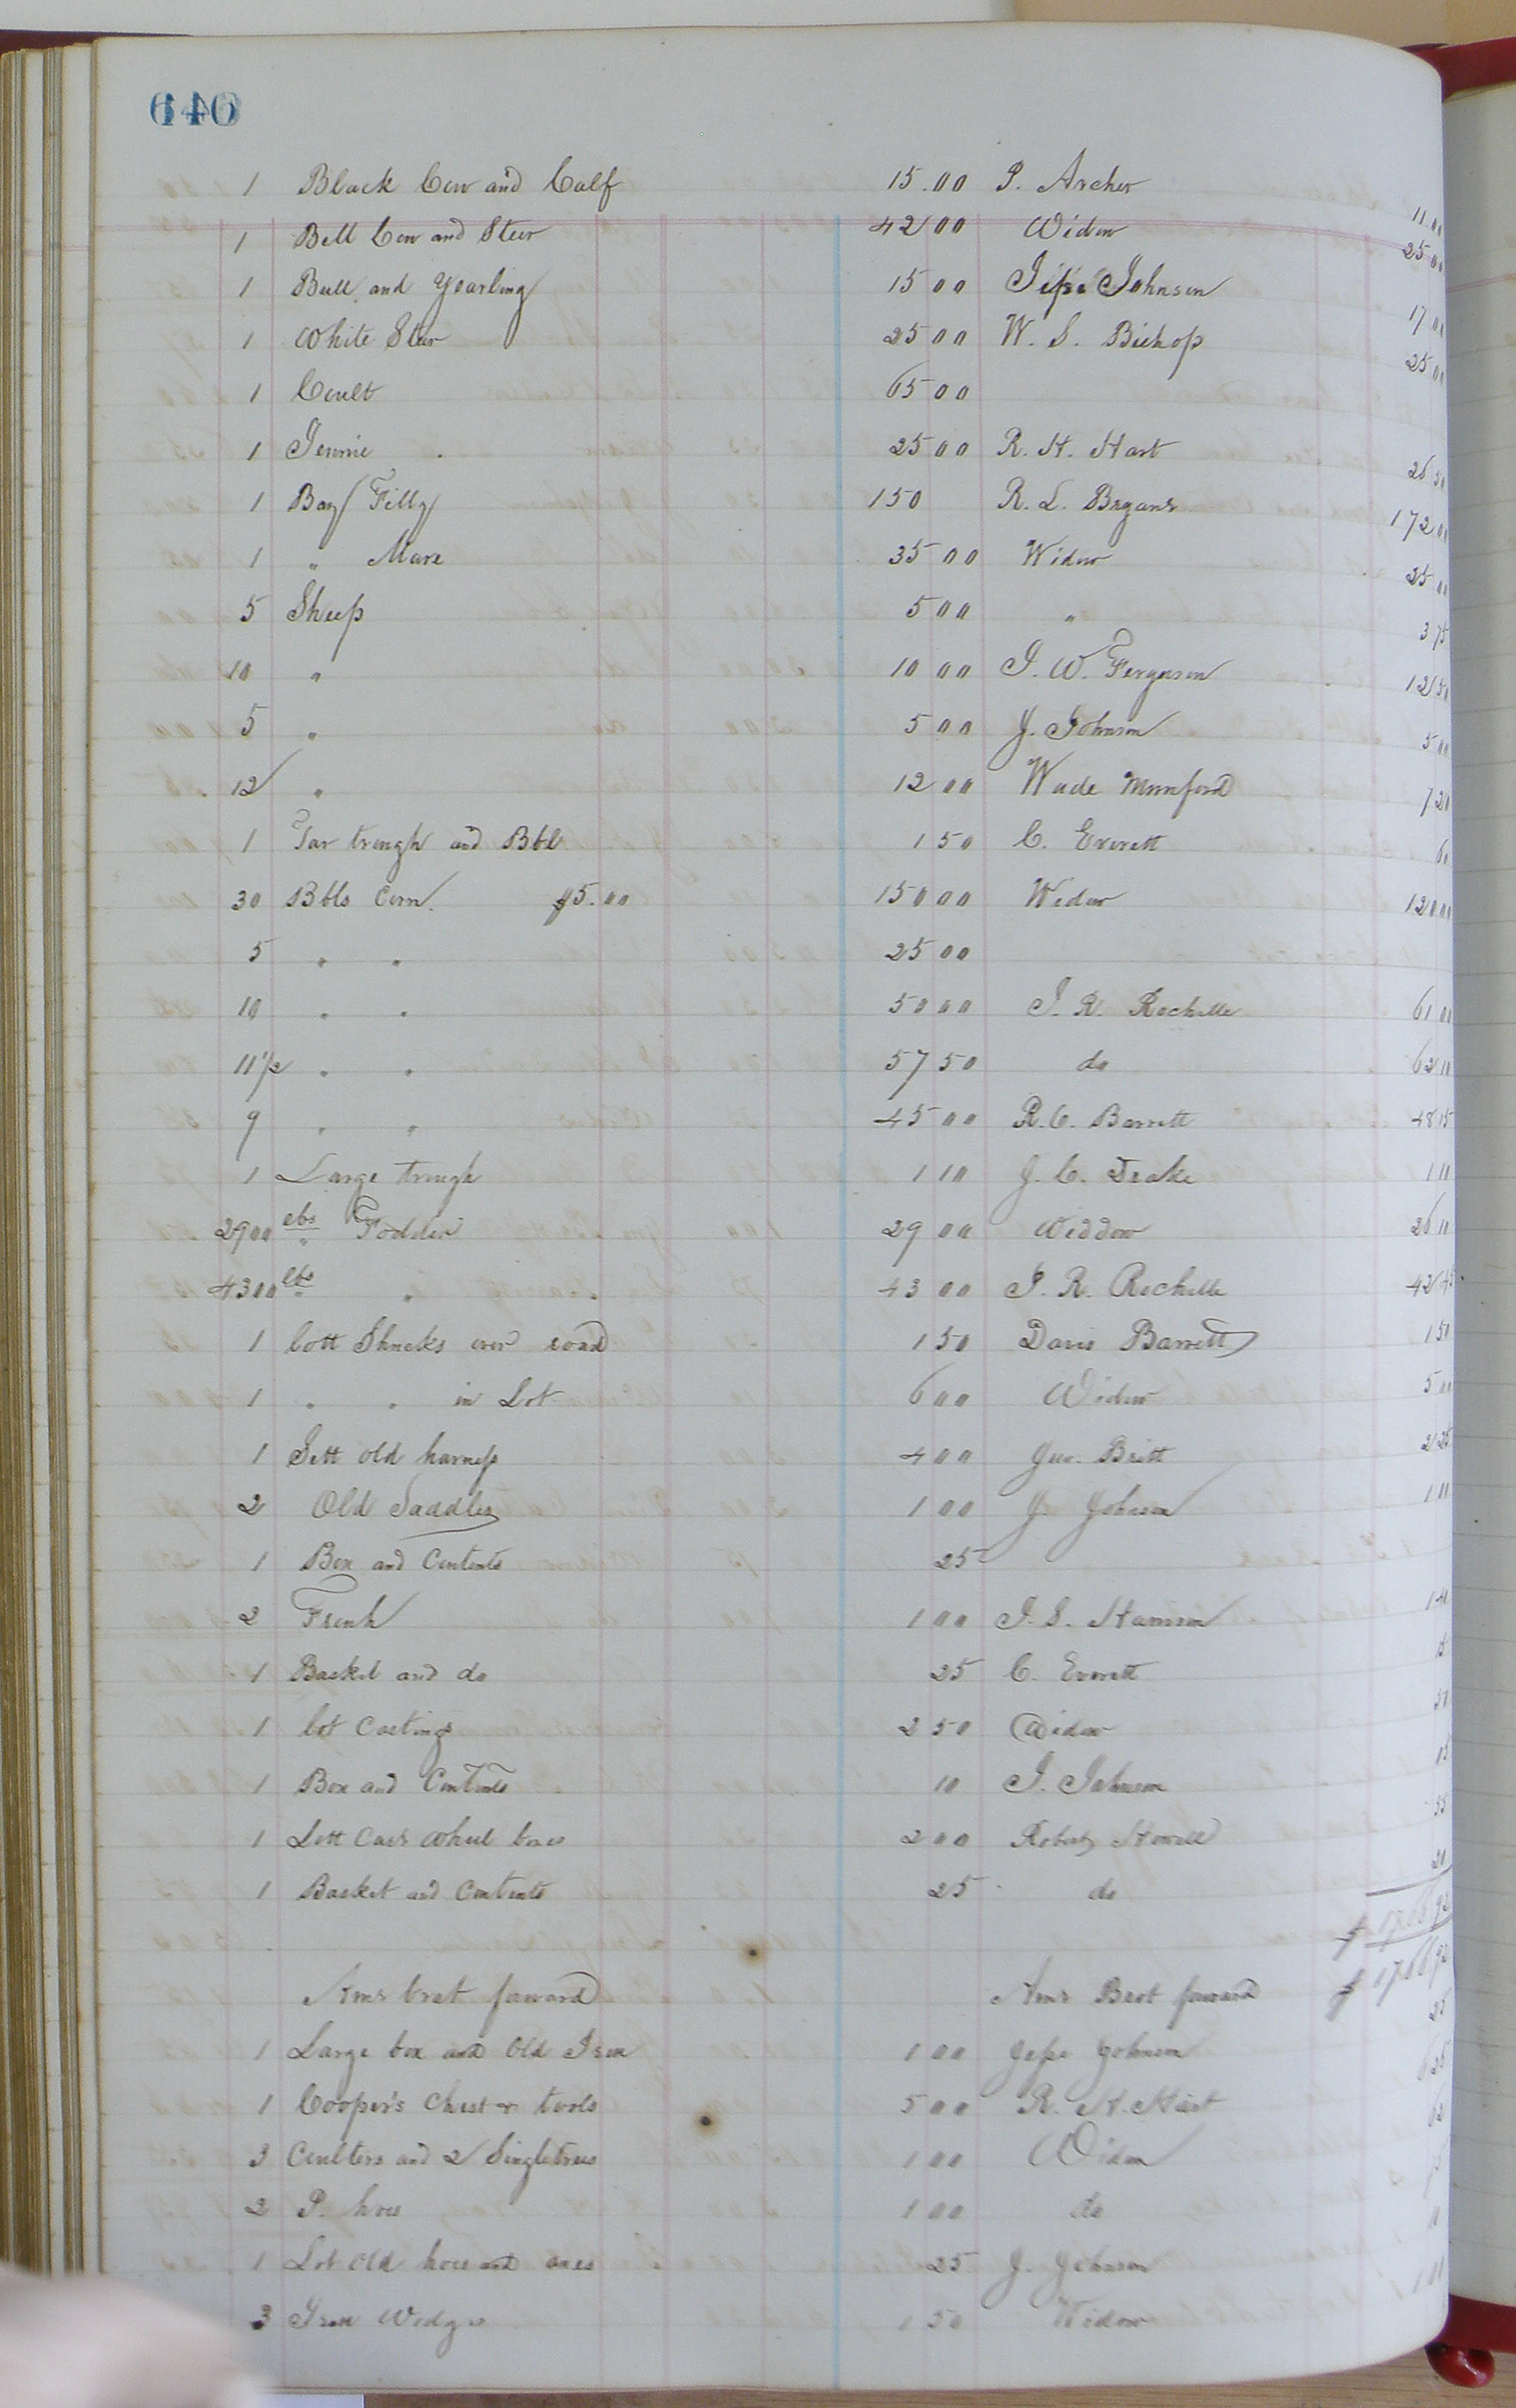 640
1 Black Cow and Calf 15.00 P. Archer 11.00
1 Bell Cow and Steer 42 00 Widow 25 00
1 Bull and Yearling 15 00 Jesse Johnson 17 00
1 White Steer 25 00 W. S. Bishop 25 00
1 Coult 65 00
1 Jennie 25 00 R. H. Hart 26 50
1 Bay Filly 150 R. L. Bryant 172 00
1 " Mare 35 00 Widow 25 00
5 Sheep 5 00 " 3 75
10 " 10 00 J. W. Ferguson 12 50
5 " 5 00 J. Johnson 5 00
12 " 12 00 Wade Mumford 7 20
1 Tar trough and Bbl 1 50 C. Everett 60
30 Bbls Corn. $5.00 150 00 Widow 120 00
5 " " 25 00
10 " " 50 00 J. R. Rochelle 61 00
11 1/2 " " 57 50 do 62 10
9 " " 45 00 R. C. Barrett 48 15
1 Large trough 1 10 J. C. Drake 1 10
2900 lbs Fodder 29 00 Widdow 26 10
4300 lbs " 43 00 J. R. Rochelle 42 45
1 lott Shucks over road 1 50 Davis Barrett 1 50
1 " " in Lot 6 00 Widow 5 00
1 Sett old harness 4 00 Geo. Britt 2 25
2 Old Saddles 1 00 J. Johnson 1 00
1 Box and Contents 25
2 1 00 J. S. Harrison
1 Basket and do 25 C. Everett
1 lot Castings 2 50 Widow
1 Box and Contents 10 J. Johnson
1 Lott Cart wheel boxes 2 00 Robert Howell
1 Basket and Contents 25 do 20
$
Amt brot forward Amt Brot forward $
1 Large box and Old Iron 1 00 Jesse Johnson
1 Cooper's Chest & tools 5 00 R. H. Hart
3 Coulters and 2 Singletrees 1 00 Widow
2 P. hoes 1 00 do
1 Lot Old hoes and axes 25 J. Johnson
3 Iron Wedges 1 50 Widow